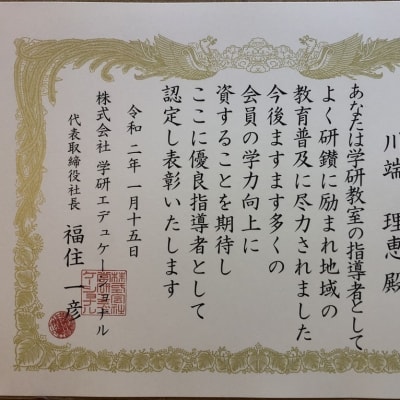 川端 理恵 殿
あなたは学研教室の指導者として
よく研鑽に励まれ地域の
教育普及に尽力されました
今後ますます多くの
会員の学力向上に
資することを期待し
ここに優良指導者として
認定し表彰いたします
令和二年一月十五日
株式会社 学研エデュケーショナル
代表取締役社長 福住 一彦